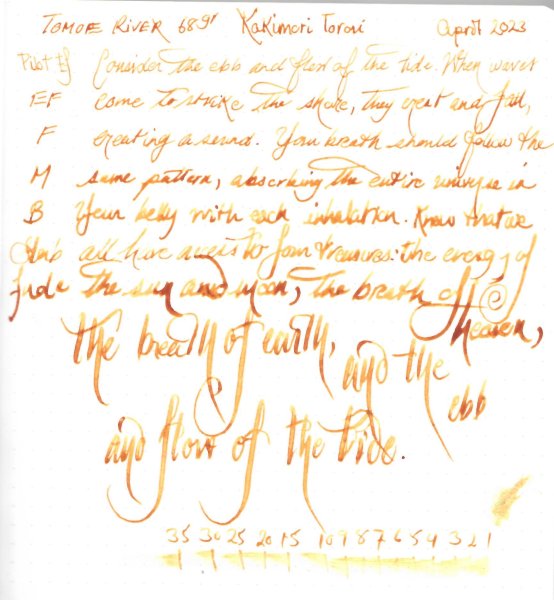 TOMOE RIVER 68gr Kakimori Torori April 2023
Pilot Ef Consider the ebb and flow of the tide. When waves
EF come to strike the shore, they crest and fall,
F creating a sound. Your breath should follow the
M same pattern, absorbing the entire universe in
B Your belly with each inhalation. Know that we
all have access to four treasures: the energy of
Fude the sun and moon, the breath of heaven,
the breath of earth,
and the
ebb
and flow of the tide.
35 30 25 20 15 10 9 8 7 6 5 4 3 2 1